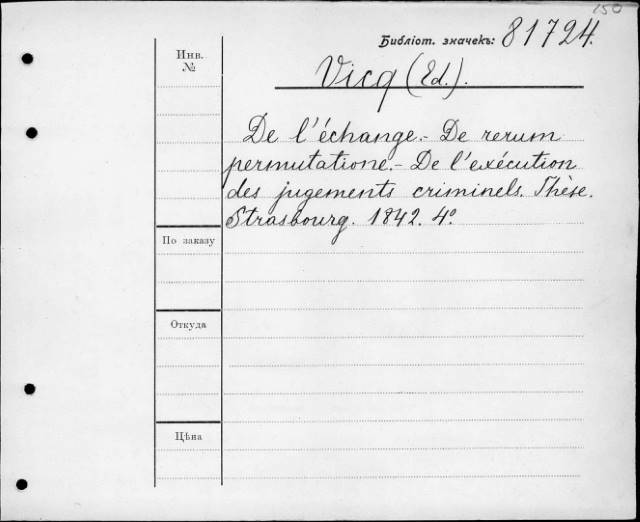 150
Библіот. значекъ: 81724.
Инв.
№
Vicq (Ed.).
De l'échange.- De rerum
permutatione.- De l'exécution
des jugements criminels. Thèse.
Strasbourg. 1842. 4º
По заказу
Откуда
Цѣна